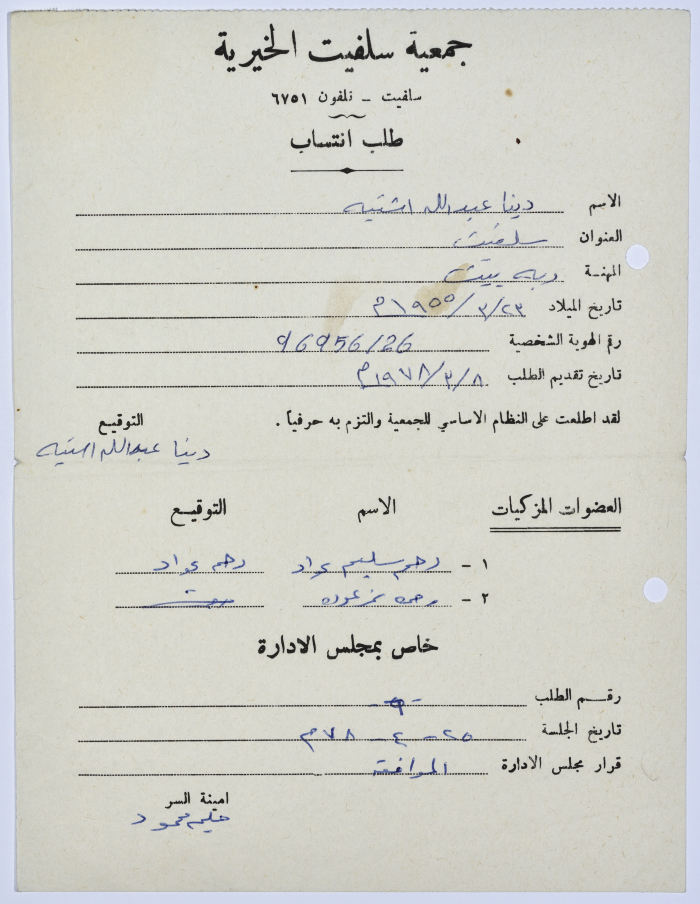 جمعية سلفيت الخيرية
سلفيت - تلفون ٦٧٥١
طلب انتساب
الاسم دينا عبدالله اشتيه
العنوان سلفيت
المهنة ربه بيت
تاريخ الميلاد ٢٣/٣/١٩٥٥م
رقم الهوية الشخصية 96956/26
تاريخ تقديم الطلب ٨/٣/١٩٧٨م
لقد اطلعت على النظام الاساسي للجمعية والتزم به حرفياً .
التوقيع
دينا عبدالله اشتيه
العضوات المزكيات الاسم التوقيع
١ - رحمه سليم عواد رحمه عواد
٢ -
خاص بمجلس الادارة
رقم الطلب
تاريخ الجلسة ٢٥ - ٤ - ٧٨م
قرار مجلس الادارة الموافقة
امينة السر
محمود